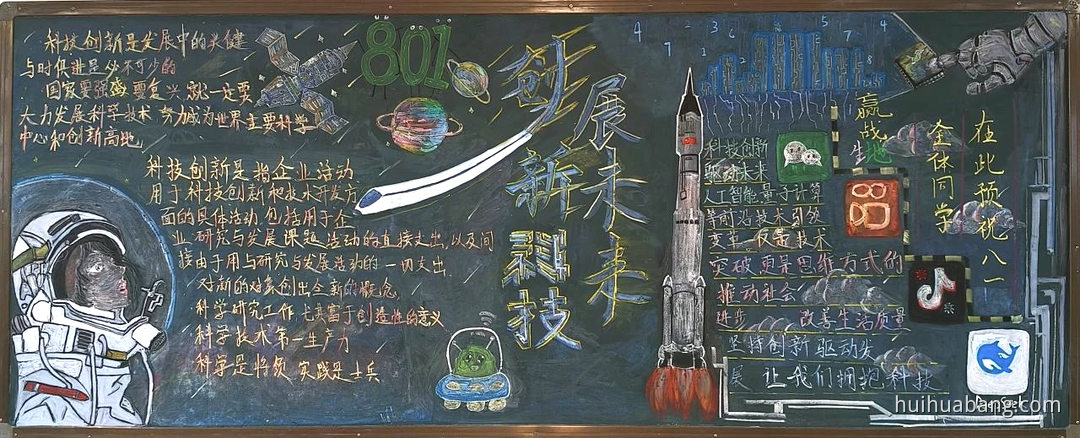 科技创新是发展中的关键
与时俱进是必不可少的
国家要强盛 要复兴 就一定要
大力发展科学技术 努力成为世界主要科学
中心和创新高地
801
科技创新是指企业活动
用于科技创新和技术开发方
面的具体活动 包括用于企
业研究与发展课题活动的直接支出,以及间
接由于用与研究与发展活动的一切支出.
对新的对象创出全新的概念
科学研究工作尤其富于创造性的意义
科学技术第一生产力
科学是将领 实践是士兵
创新科技
展未来
4 7 2 3 6 7 4 5 7 4
8
科技创新
驱动未来
人工智能量子计算
等前沿技术引领
变革 仅是技术
突破更是思维方式的
推动社会
进步 改善生活质量
坚持创新驱动发
展 让我们拥抱科技
在此预祝八一
全体同学
赢战
生地
DeepSeek
huihuabang.com